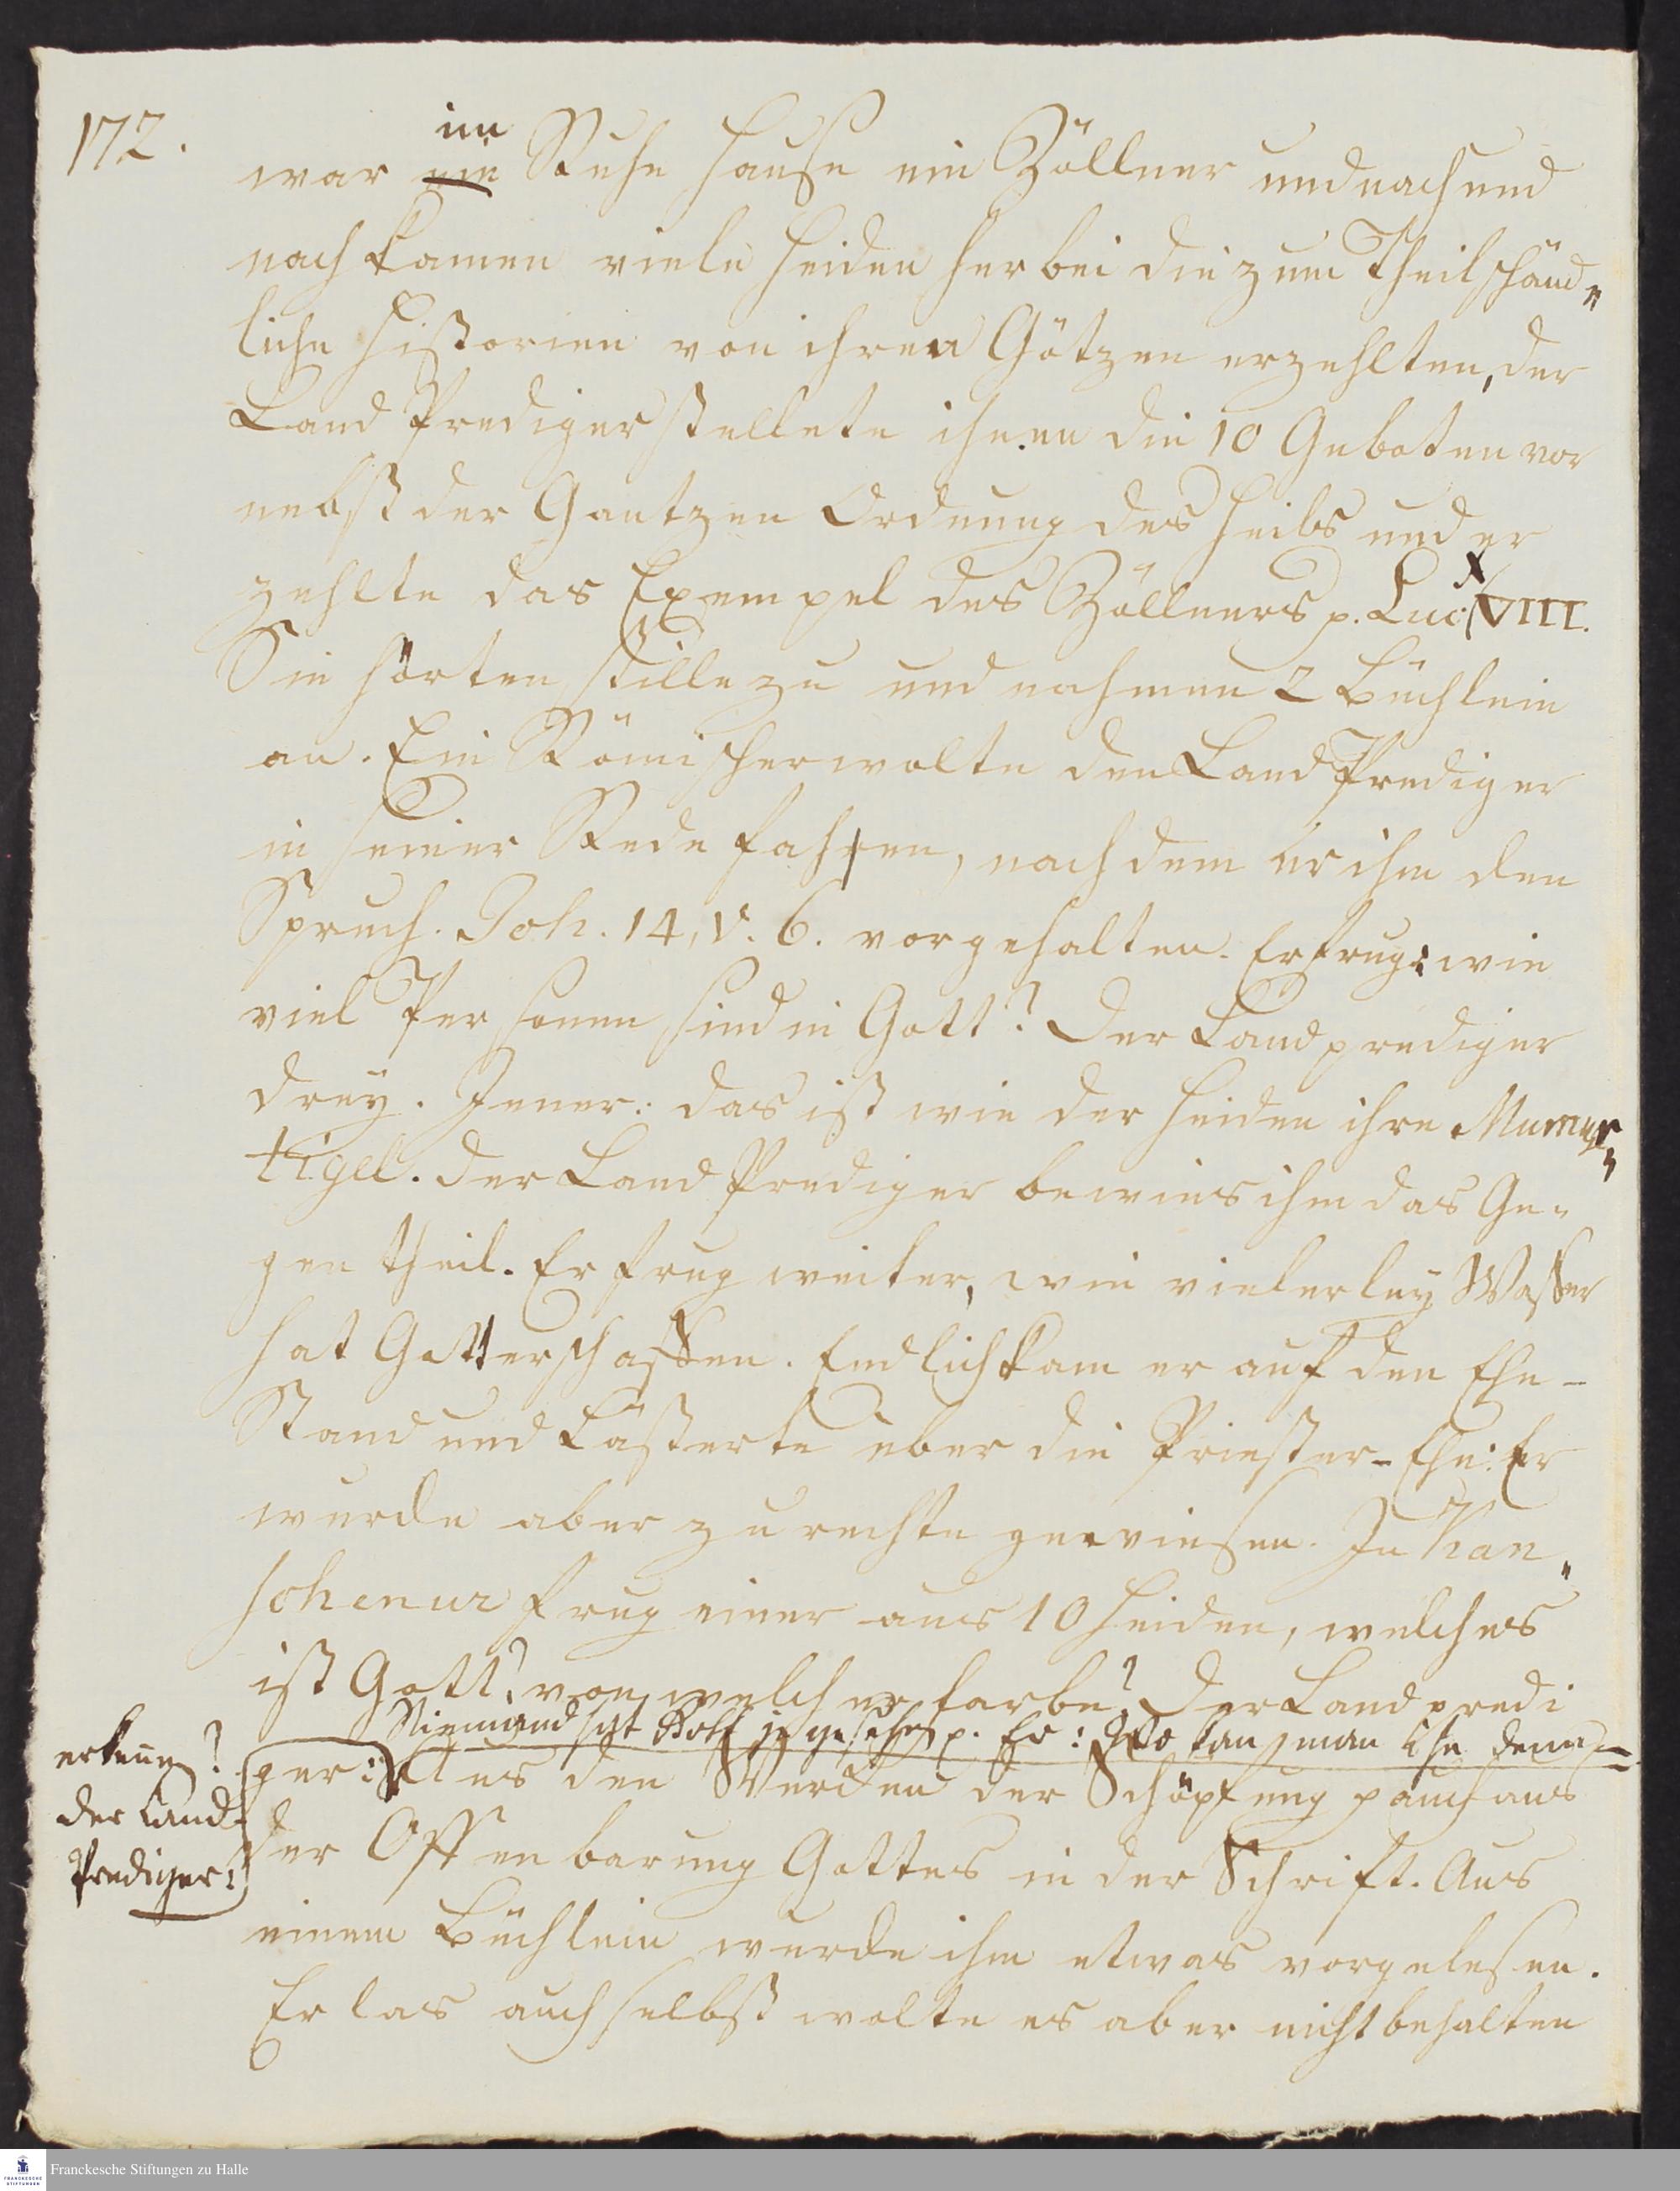 172.
im
war ein Ruhe Hause ein Zöllner und nach und
nach kamen viele Heiden herbei die zum Theil schänd„
liche Historien von ihren Götzen erzehlten, der
Land Prediger stellete ihnen die 10 Geboten vor
nebst der Gantzen Ordnung des Heils und er
zehlte das Exempel des Zöllners p. Luc. XVIII.
Sie hörten stille zu und nahmen 2 Büchlein
an. Ein Römischer wolte den Land Prediger
in seiner Rede fahen, nach dem er ihm den
Spruch. Joh. 14, v. 6. vorgehalten. Er frug: wie
viel Personen sind in Gott? Der Landprediger
drey. Jener: das ist wie der Heiden ihre Mumur„
tigel. Der Land Prediger bewies ihm das Ge„
gen theil. Er frug weiter, wie vielerley Wasser
hat Gott erschaffen. Endlich kam er auf den Ehe-
Stand und Lästerte über die Priester-Ehe: Er
wurde aber zu rechte gewiesen. In Kan„
schenur frug einer aus 10 Heiden, welches
ist Gott? von welcher farbe? Der Landpredi
Niemand hat Gott je gesehen p. Er: Wo kan man ihn denn
erkennen?
der Land-
Prediger:
ger: Aus den Werken der Schöpfung p auch aus
der Offenbarung Gottes in der Schrift. Aus
einem Büchlein wurde ihm etwas vorgelesen.
Er las auch selbst wolte es aber nicht behalten
Franckesche Stiftungen zu Halle
FRANCKESCHE
STIFTUNGEN